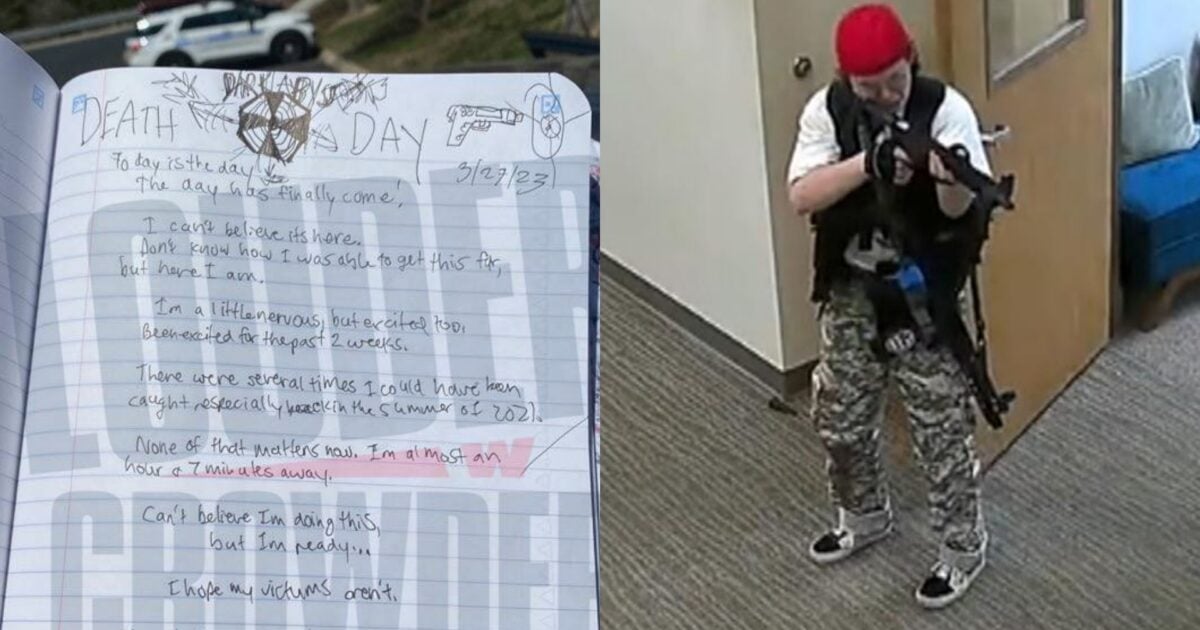 DARK
DEATH DAY
3/27/23
Today is the day
The day has finally come!
I can't believe its here.
Don't know how I was able to get this far,
but here I am.
I'm a little nervous, but excited too.
Been excited for the past 2 weeks.
There were several times I could have been
caught, especially back in the summer of 2021.
None of that matters now. I'm almost an
hour & 7 minutes away.
Can't believe I'm doing this,
but I'm ready...
I hope my victums aren't.
LOUDER
W
CROWDE